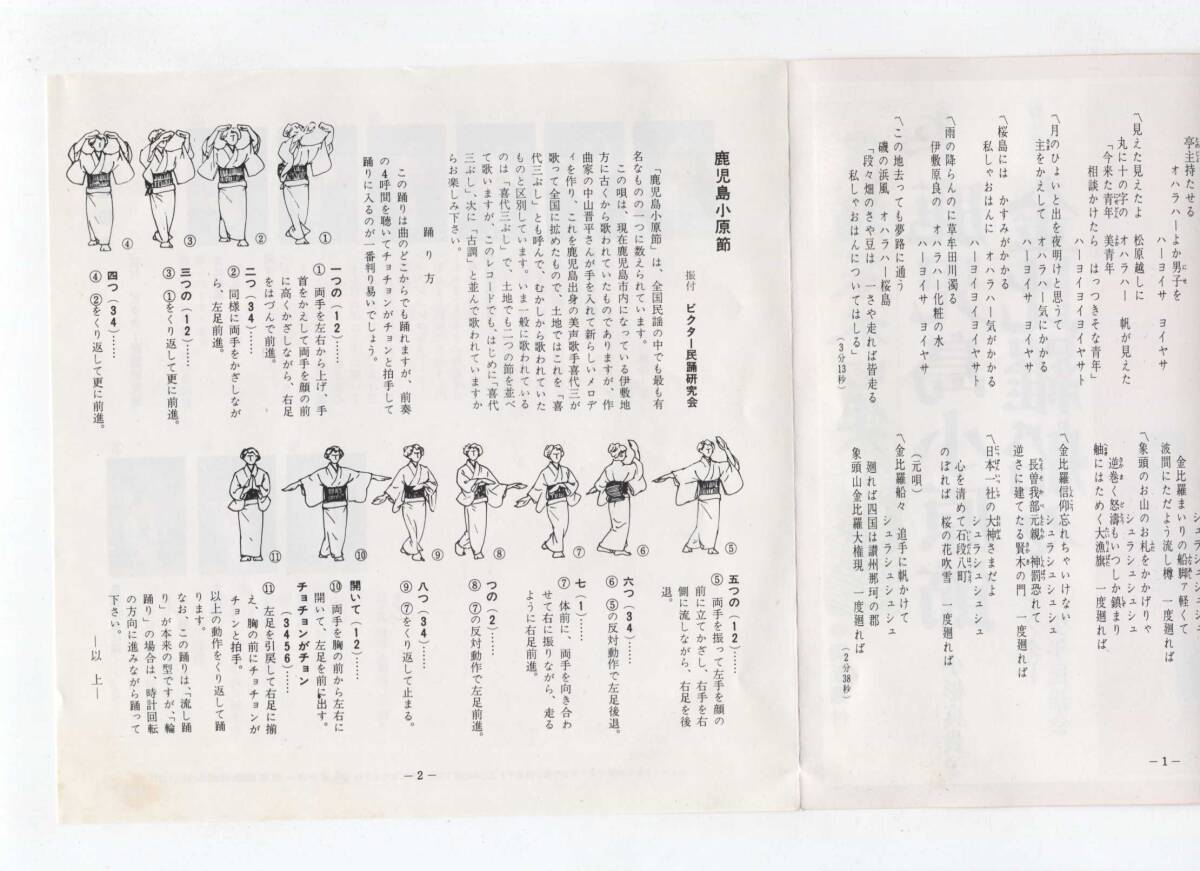 亭主持たせる
オハラハーよか男を
ハーヨイサ ヨイヤサ
〽見えた見えたよ 松原越しに
丸に十の字の オハラハー 帆が見えた
「今来た青年 美青年
相談かけたら はっつきそな青年」
ハーヨイヨイヨイヤサト
〽月のひょいと出を夜明けと思うて
主をかえして オハラハー気にかかる
ハーヨイサ ヨイヤサ
〽桜島には かすみがかかる
私しゃおはんに オハラハー気がかかる
ハーヨイヨイヨイヤサト
〽雨の降らんのに草牟田川濁る
伊敷原良の オハラハー化粧の水
ハーヨイサ ヨイヤサ
〽この地去っても夢路に通う
磯の浜風 オハラハー桜島
「段々畑のさや豆は 一さや走れば皆走る
私しゃおはんについてはしる」
(3分13秒)
シュラシュシュシュ
金比羅まいりの船脚ァ軽くて
波間にただよう流し樽 一度廻れば
シュラシュシュシュ
象頭のお山のお札をかかげりゃ
逆巻く怒濤もいつしか鎮まり
舳にはためく大漁旗 一度廻れば
シュラシュシュシュ
〽金比羅信仰忘れちゃいけない
シュラシュシュシュ
長曽我部元親 神罰恐れて
逆さに建てたる賢木の門 一度廻れば
〽日本一社の大神さまだよ
シュラシュシュシュ
心を清めて石段八町
のぼれば 桜の花吹雪 一度廻れば
(元唄)
〽金比羅船々 追手に帆かけて
シュラシュシュシュ
廻れば四国は讃州那珂の郡
象頭山金比羅大権現 一度廻れば
(2分38秒)
―1―
鹿児島小原節
振付 ビクター民謡研究会
「鹿児島小原節」は、全国民謡の中でも最も有
名なものの一つに数えられています。
この唄は、現在鹿児島市内になっている伊敷地
方に古くから歌われていたものでありますが、作
曲家の中山晋平さんが手を入れて新らしいメロデ
ィを作り、これを鹿児島出身の美声歌手喜代三が
歌って全国に拡めたもので、土地ではこれを「喜
代三ぶし」とも呼んで、むかしから歌われていた
ものと区別しています。いま一般に歌われている
のは「喜代三ぶし」で、土地でも二つの節を並べ
て歌いますが、このレコードでも、はじめに「喜代
三ぶし」次に「古調」と並んで歌われていますか
らお楽しみ下さい。
踊り方
この踊りは曲のどこからでも踊れますが、前奏
の4呼間を聴いてチョチョンがチョンと拍手して
踊りに入るのが一番判り易いでしょう。
①
②
③
④
一つの(12)……
① 両手を左右から上げ、手
首をかえして両手を顔の前
に高くかざしながら、右足
をはづんで前進。
二つ(34)……
② 同様に両手をかざしなが
ら、左足前進。
三つの(12)……
③ ①をくり返して更に前進。
四つ(34)……
④ ②をくり返して更に前進。
⑤
⑥
⑦
⑧
⑨
⑩
⑪
五つの(12)……
⑤ 両手を振って左手を顔の
前に立てかざし、右手を右
側に流しながら、右足を後
退。
六つ(34)……
⑥ ⑤の反対動作で左足後退。
七(1)……
⑦ 体前に、両手を向き合わ
せて右に振りながら、走る
ように右足前進。
つの(2)……
⑧ ⑦の反対動作で左足前進。
八つ(34)……
⑨ ⑦をくり返して止まる。
開いて(12)……
⑩ 両手を胸の前から左右に
開いて、左足を前に出す。
チョチョンがチョン
(3456)……
⑪ 左足を引戻して右足に揃
え、胸の前にチョチョンが
チョンと拍手。
以上の動作をくり返して踊
ります。
なお、この踊りは、「流し踊
り」が本来の型ですが、「輪
踊り」の場合は、時計回転
の方向に進みながら踊って
下さい。
―以 上―
―2―